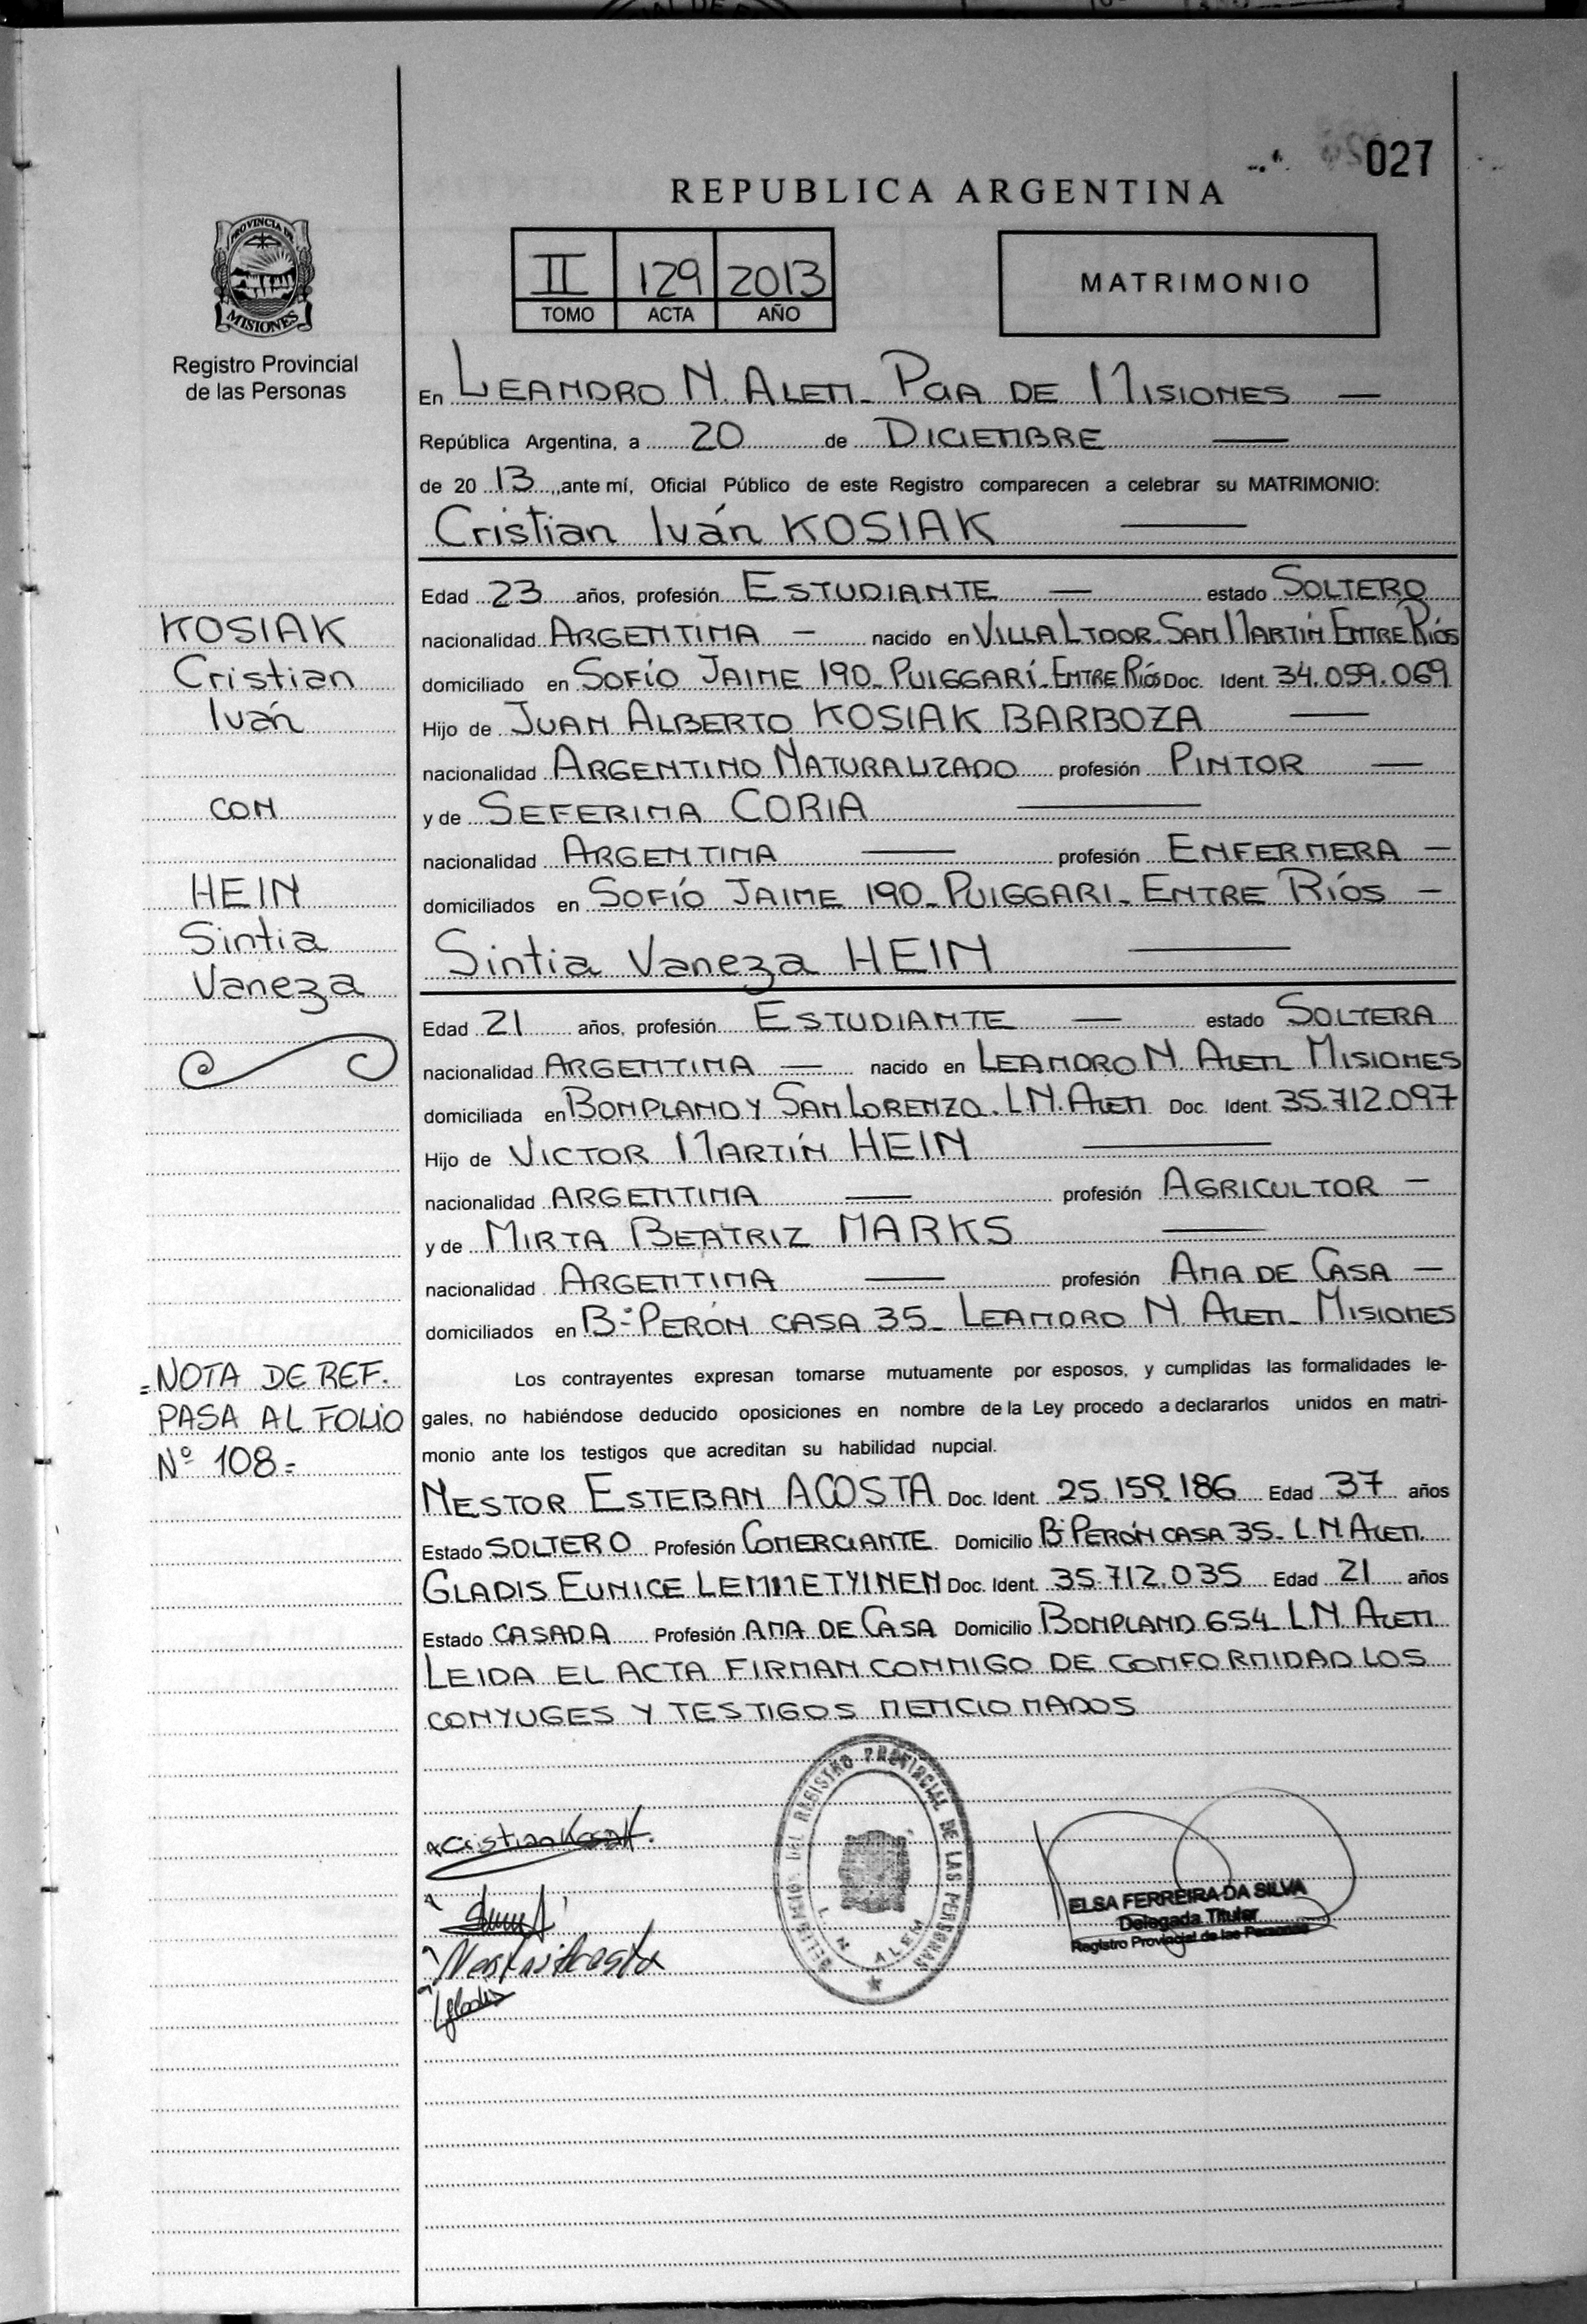 027
REPUBLICA ARGENTINA
PROVINCIA DE
MISIONES
Registro Provincial
de las Personas
II 129 2013
TOMO ACTA AÑO
MATRIMONIO
En LEANDRO N. ALEM_ PCIA DE MISIONES —
República Argentina, a 20 de DICIEMBRE —
de 20 13, ante mí, Oficial Público de este Registro comparecen a celebrar su MATRIMONIO:
Cristian Iván KOSIAK —
Edad 23 años, profesión ESTUDIANTE — estado SOLTERO
nacionalidad ARGENTINA — nacido en VILLA LTDOR. SAN MARTÍN ENTRE RÍOS
domiciliado en SOFÍO JAIME 190_ PUIGGARÍ_ ENTRE RÍOS Doc. Ident. 34.059.069
Hijo de JUAN ALBERTO KOSIAK BARBOZA —
nacionalidad ARGENTINO NATURALIZADO profesión PINTOR —
y de SEFERINA CORIA —
nacionalidad ARGENTINA — profesión ENFERMERA —
domiciliados en SOFÍO JAIME 190_ PUIGGARI_ ENTRE RÍOS —
Sintia Vaneza HEIN —
Edad 21 años, profesión ESTUDIANTE — estado SOLTERA
nacionalidad ARGENTINA — nacido en LEANDRO N. ALEM_ MISIONES
domiciliada en BONPLAND Y SAN LORENZO. L.N. ALEM Doc. Ident. 35.712.097
Hijo de VICTOR MARTÍN HEIN —
nacionalidad ARGENTINA — profesión AGRICULTOR —
y de MIRTA BEATRIZ MARKS —
nacionalidad ARGENTINA — profesión AMA DE CASA —
domiciliados en Bº PERÓN CASA 35_ LEANDRO N. ALEM_ MISIONES
Los contrayentes expresan tomarse mutuamente por esposos, y cumplidas las formalidades le-
gales, no habiéndose deducido oposiciones en nombre de la Ley procedo a declararlos unidos en matri-
monio ante los testigos que acreditan su habilidad nupcial.
NESTOR ESTEBAN ACOSTA Doc. Ident. 25.159.186 Edad 37 años
Estado SOLTERO Profesión COMERCIANTE Domicilio Bº PERÓN CASA 35_ L.N. ALEM.
GLADIS EUNICE LEMMETYINEN Doc. Ident. 35.712.035 Edad 21 años
Estado CASADA Profesión AMA DE CASA Domicilio BONPLAND 654_ L.N. ALEM
LEIDA EL ACTA FIRMAN CONMIGO DE CONFORMIDAD LOS
CONYUGES Y TESTIGOS MENCIONADOS
KOSIAK
Cristian
Iván
CON
HEIN
Sintia
Vaneza
=NOTA DE REF.
PASA AL FOLIO
Nº 108=
Cristian Kosiak.
DEL REGISTRO PROVINCIAL DE LAS PERSONAS
L. N. ALEM
ELSA FERREIRA DA SILVA
Delegada Titular
Registro Provincial de las Personas